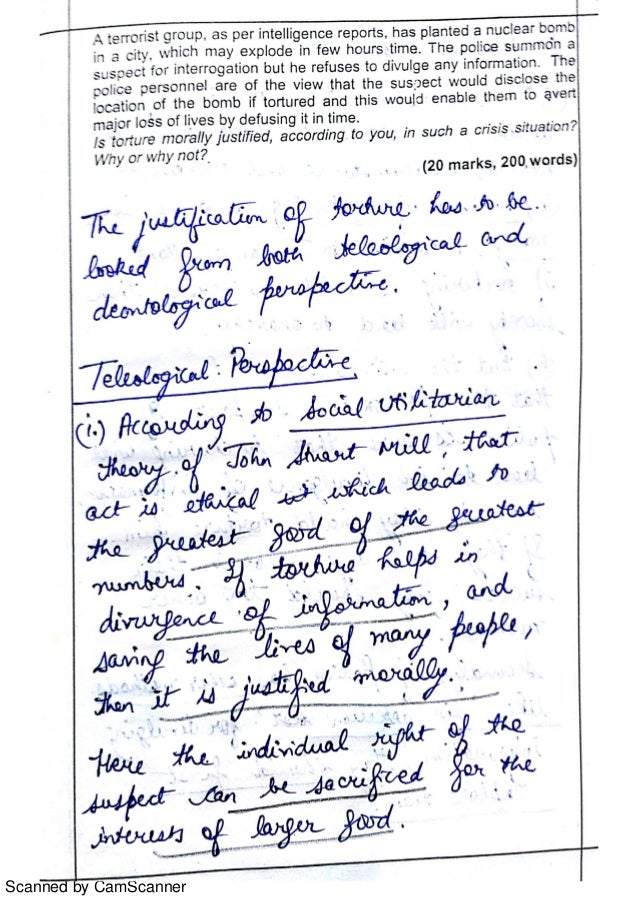 A terrorist group, as per intelligence reports, has planted a nuclear bomb
in a city, which may explode in few hours time. The police summon a
suspect for interrogation but he refuses to divulge any information. The
police personnel are of the view that the suspect would disclose the
location of the bomb if tortured and this would enable them to avert
major loss of lives by defusing it in time.
Is torture morally justified, according to you, in such a crisis situation?
Why or why not?
(20 marks, 200 words)
The justification of torture has to be
looked from both teleological and
deontological perspective.
Teleological Perspective
(i.) According to Social Utilitarian
theory of John Stuart Mill, that
act is ethical which leads to
the greatest good of the greatest
numbers. If torture helps in
divurgence of information, and
saving the lives of many people,
then it is justified morally.
Here the individual right of the
suspect can be sacrificed for the
interests of larger good.
Scanned by CamScanner